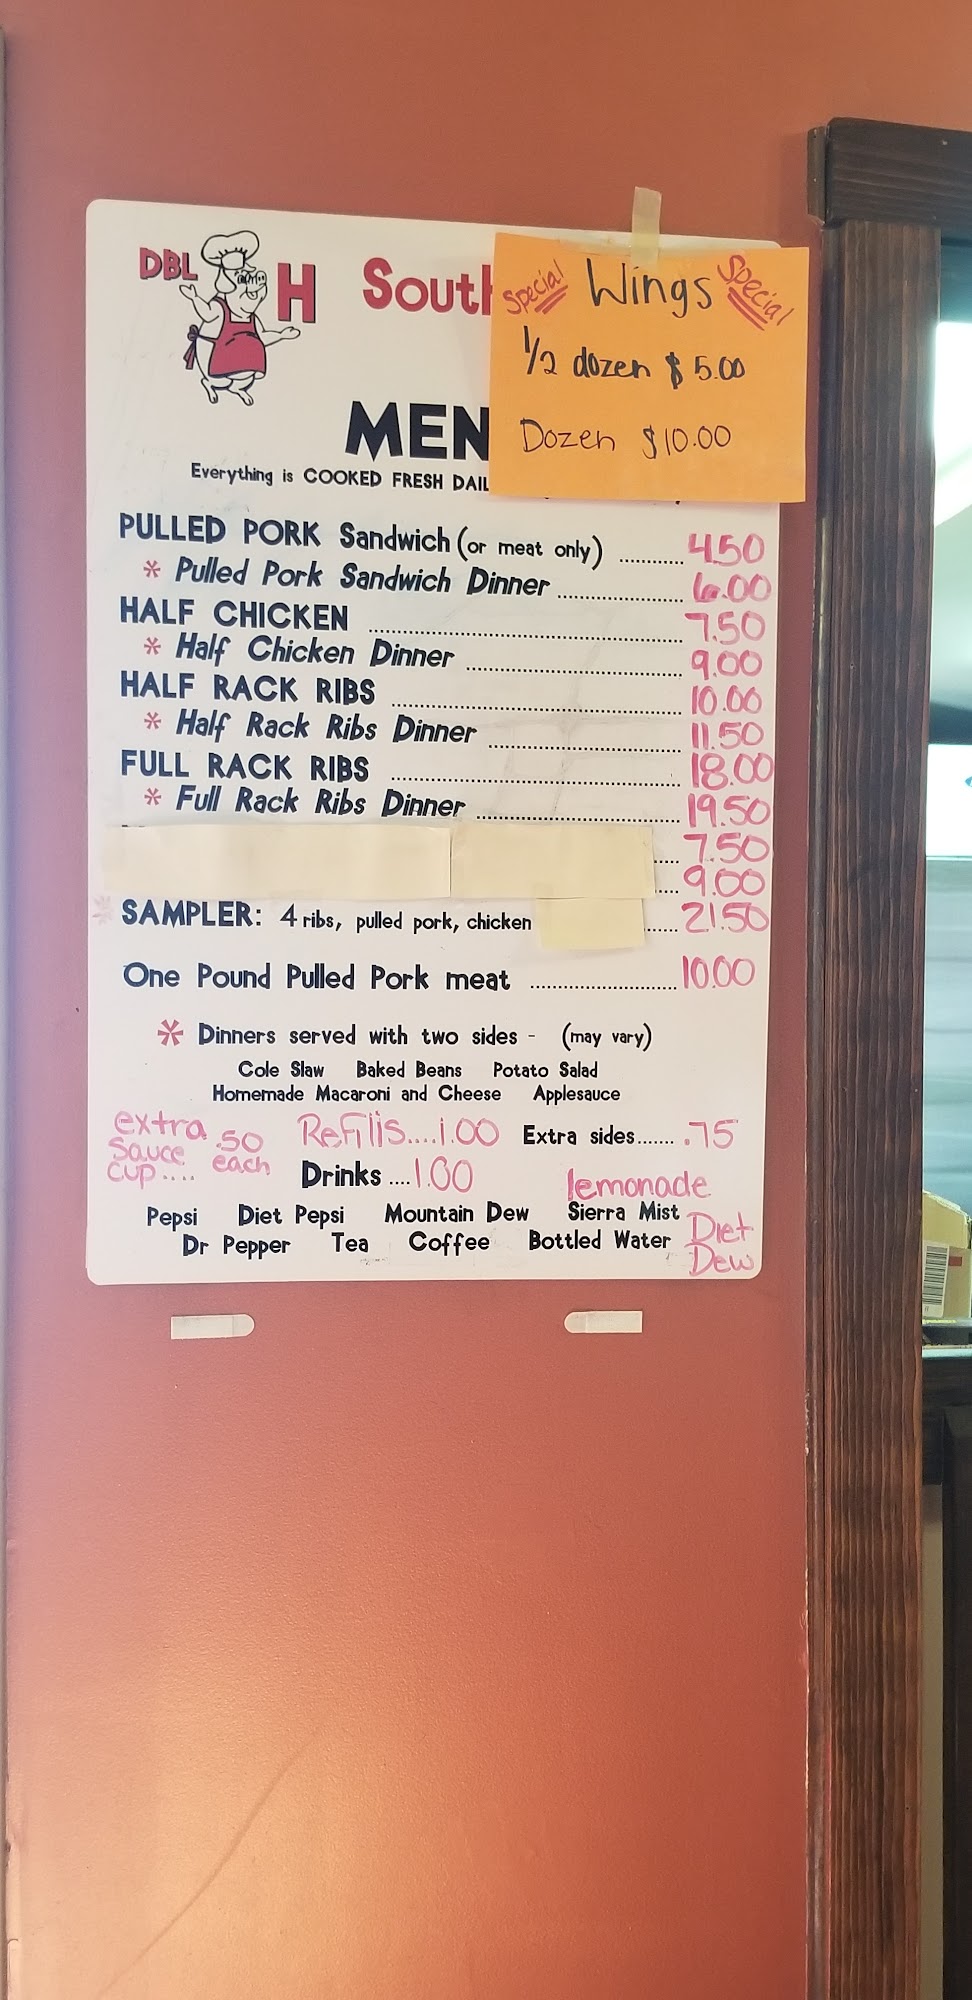 DBL H South
Special Wings Special
1/2 dozen $5.00
Dozen $10.00
MEN
Everything is COOKED FRESH DAIL
PULLED PORK Sandwich (or meat only) ........... 4.50
* Pulled Pork Sandwich Dinner ........... 6.00
HALF CHICKEN ........... 7.50
* Half Chicken Dinner ........... 9.00
HALF RACK RIBS ........... 10.00
* Half Rack Ribs Dinner ........... 11.50
FULL RACK RIBS ........... 18.00
* Full Rack Ribs Dinner ........... 19.50
..... 7.50
..... 9.00
* SAMPLER: 4 ribs, pulled pork, chicken ...... 21.50
One Pound Pulled Pork meat ........... 10.00
* Dinners served with two sides - (may vary)
Cole Slaw Baked Beans Potato Salad
Homemade Macaroni and Cheese Applesauce
extra sauce cup.... .50 each
Refills....1.00 Extra sides....... .75
Drinks ....1.00 lemonade
Pepsi Diet Pepsi Mountain Dew Sierra Mist
Dr Pepper Tea Coffee Bottled Water Diet Dew